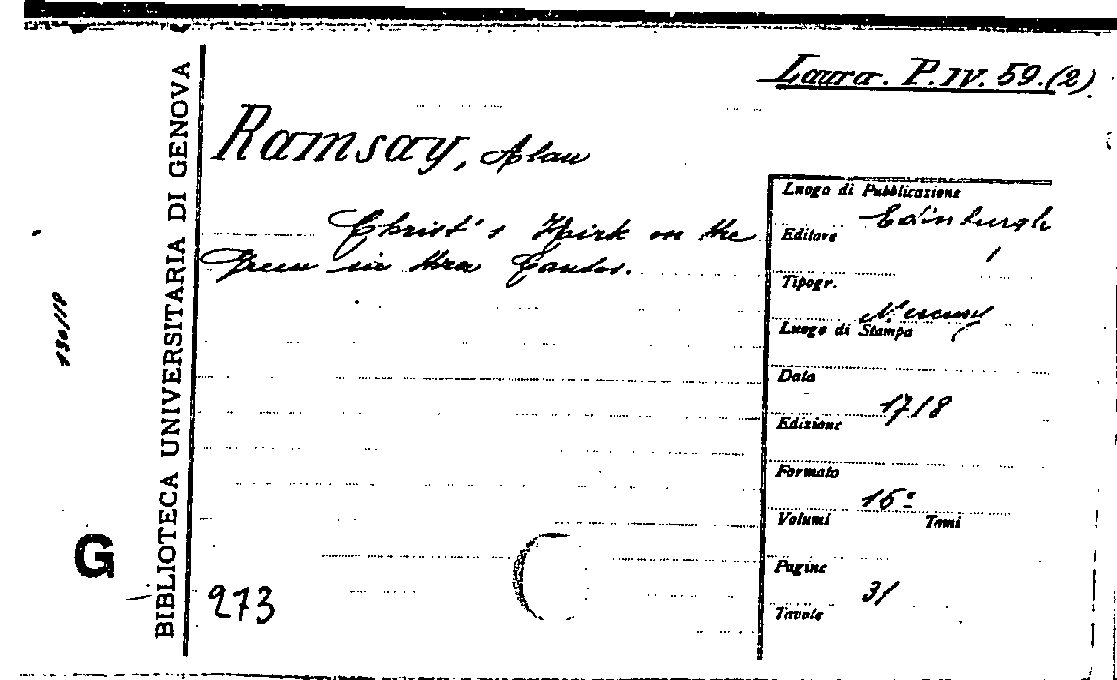 Laura. P. IV. 59. (2)
Ramsay, Alan
Christ's Kirk on the
Green in three Cantos.
Luogo di Pubblicazione
Edinburgh
Editore
Tipogr.
Mercury
Luogo di Stampa
Data
1718
Edizione
Formato
16º
Volumi Tomi
Pagine
31
Tavole
BIBLIOTECA UNIVERSITARIA DI GENOVA
G
273